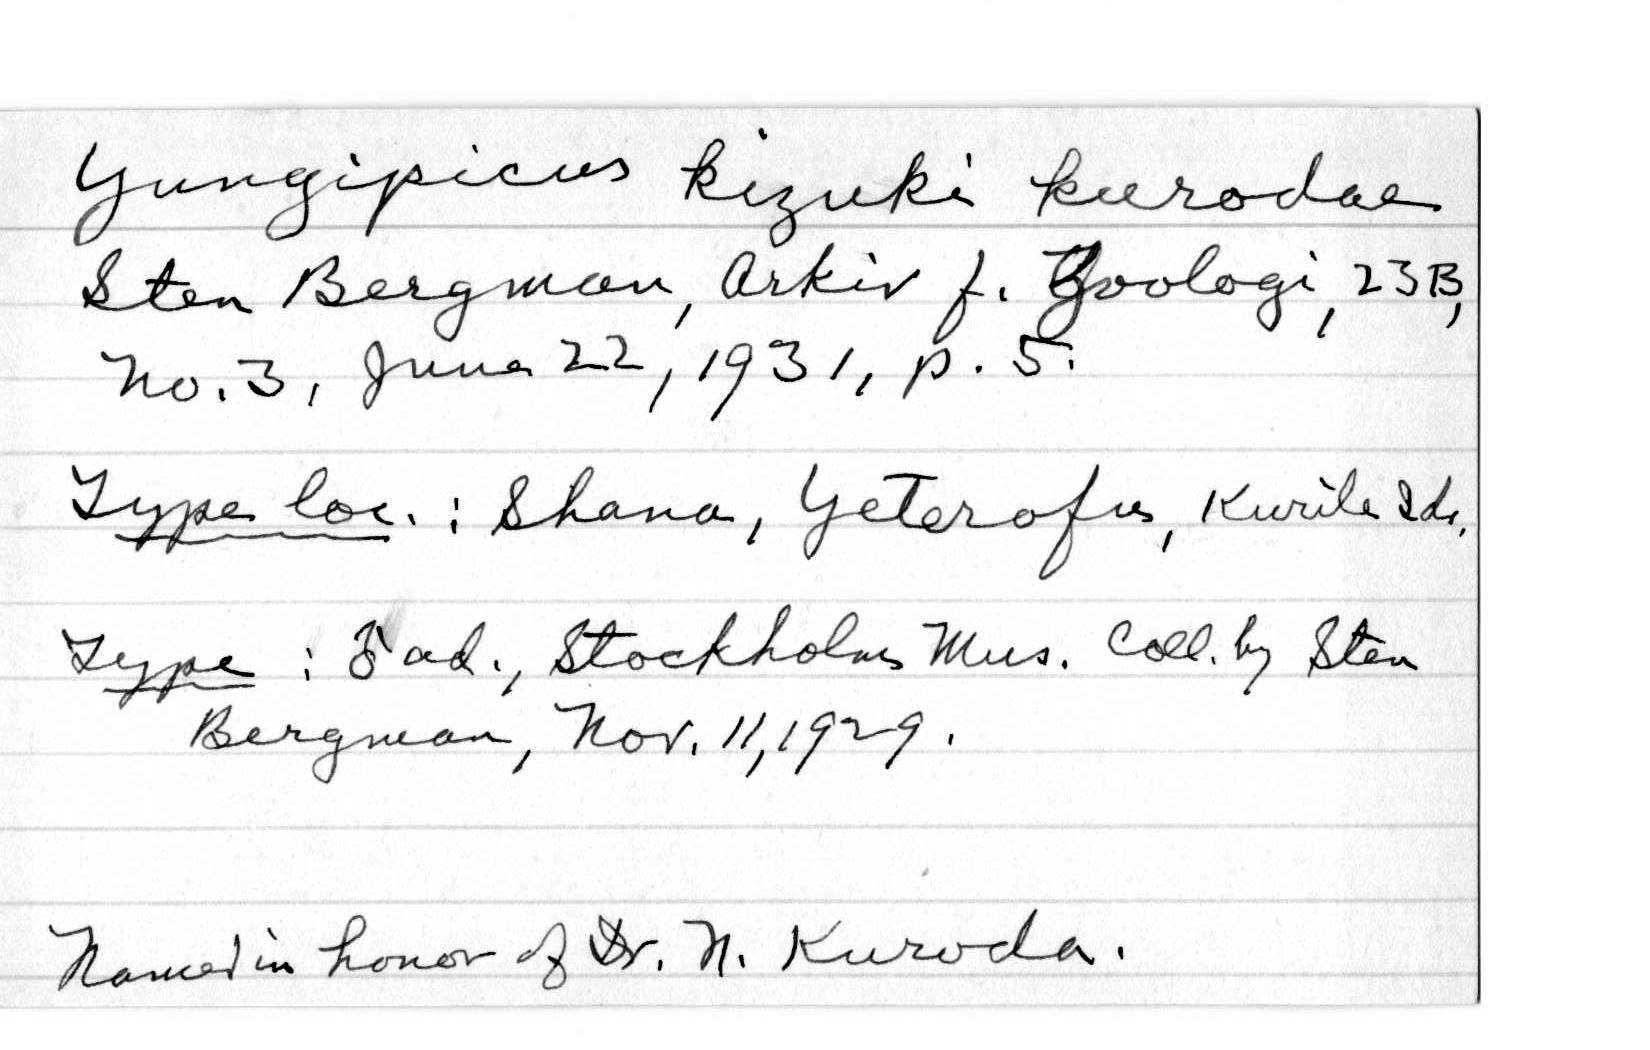 Yungipicus kizuki kurodae
Sten Bergman, Arkiv f. Zoologi, 23B,
No. 3, June 22, 1931, p. 5.
Type loc. : Shana, Yeterofu, Kurile Ids.
Type : ♂ ad., Stockholm Mus. Coll. by Sten
Bergman, Nov. 11, 1929.
Named in honor of Dr. N. Kuroda.